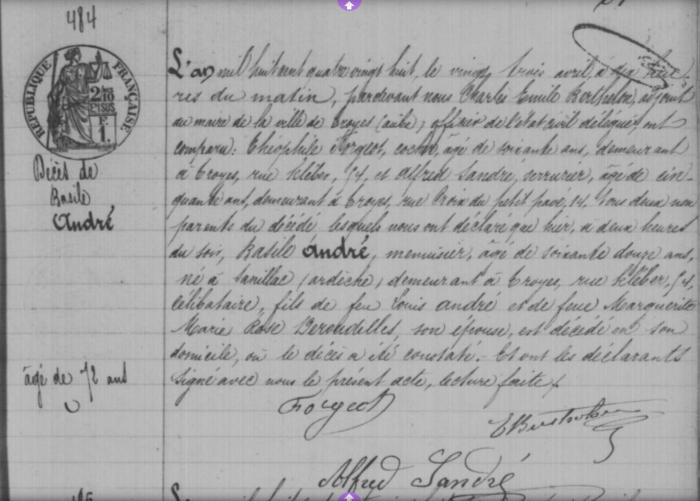 484
RÉPUBLIQUE FRANÇAISE
2/10
EN SUS
F.
1.
Décès de
Basile
André
âgé de 72 ans
L'an mil huit cent quatre vingt huit, le vingt trois avril à dix heu-
res du matin, pardevant nous Charles Emile Berthelon, adjoint
au maire de la ville de Troyes (aube), officier de l'état civil délégué, ont
comparu: Théophile Forgeot, cocher, âgé de soixante ans, demeurant
à Troyes, rue Kléber, 74, et Alfred Sandré, serrurier, âgé de cin-
quante ans, demeurant à Troyes, rue Croix du petit pavé, 14. Tous deux non
parents du décédé, lesquels nous ont déclaré que hier, à deux heures
du soir, Basile André, menuisier, âgé de soixante douze ans,
né à (ardèche) demeurant à Troyes, rue Kléber, 74,
célibataire, fils de feu Louis André et de feue Marguerite
Marie Rose son épouse, est décédé en son
domicile, où le décès a été constaté. Et ont les déclarants
signé avec nous le présent acte, lecture faite.
Forgeot
Alfred Sandré